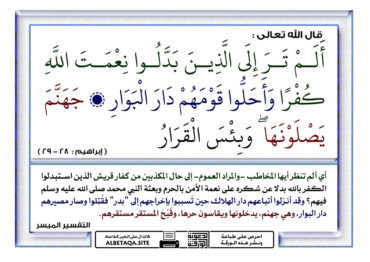 قال الله تعالى :
أَلَمْ تَرَ إِلَى الَّذِينَ بَدَّلُوا نِعْمَتَ اللَّهِ
كُفْرًا وَأَحَلُّوا قَوْمَهُمْ دَارَ الْبَوَارِ ۞ جَهَنَّمَ
يَصْلَوْنَهَا ۖ وَبِئْسَ الْقَرَارُ
( إبراهيم : ٢٨ - ٢٩ )
أي ألم تنظر أيها المخاطب -والمراد العموم- إلى حال المكذبين من كفار قريش الذين استبدلوا
الكفر بالله بدلا عن شكره على نعمة الأمن بالحرم وبعثة النبي محمد صلى الله عليه وسلم
فيهم؟ وقد أنزلوا أتباعهم دار الهلاك حين تسببوا بإخراجهم إلى "بدر" فقتلوا وصار مصيرهم
دار البوار، وهي جهنم، يدخلونها ويقاسون حرها، وقبح المستقر مستقرهم.
التفسير الميسر
فالدال على الخير كفاعله
ALBETAQA.SITE
احرص على طباعة
ونشر هذه الورقة